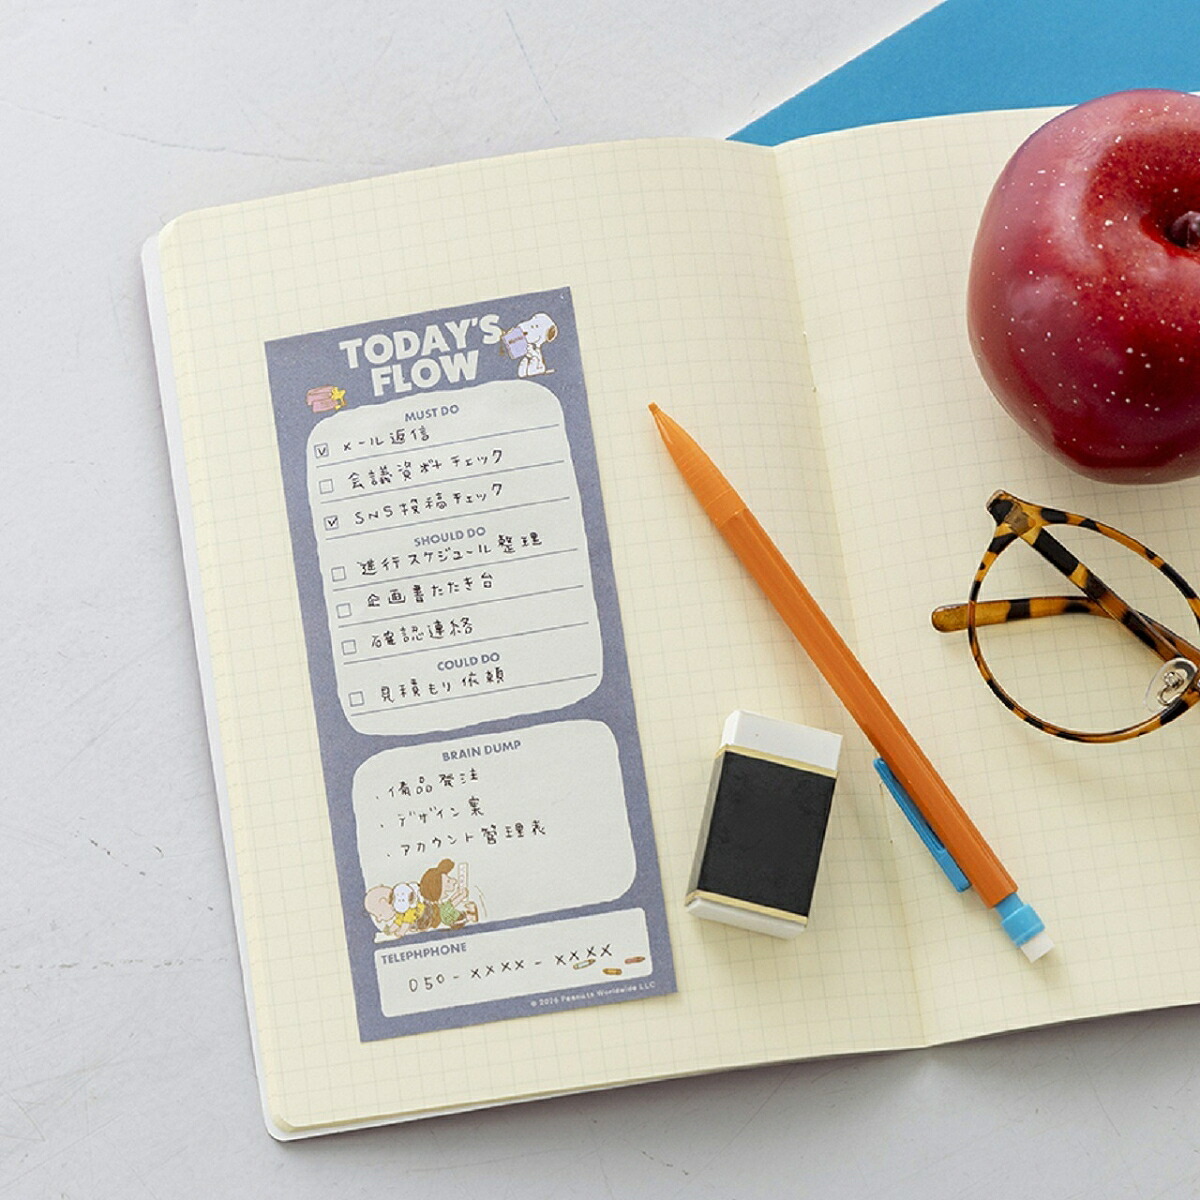 TODAY'S
FLOW
MUST DO
メール返信
会議資料チェック
SNS投稿チェック
SHOULD DO
進行スケジュール整理
企画書たたき台
確認連絡
COULD DO
見積もり依頼
BRAIN DUMP
・備品発注
・デザイン案
・アカウント管理表
TELEPHPHONE
050-XXXX-XXXX
© 2026 Peanuts Worldwide LLC